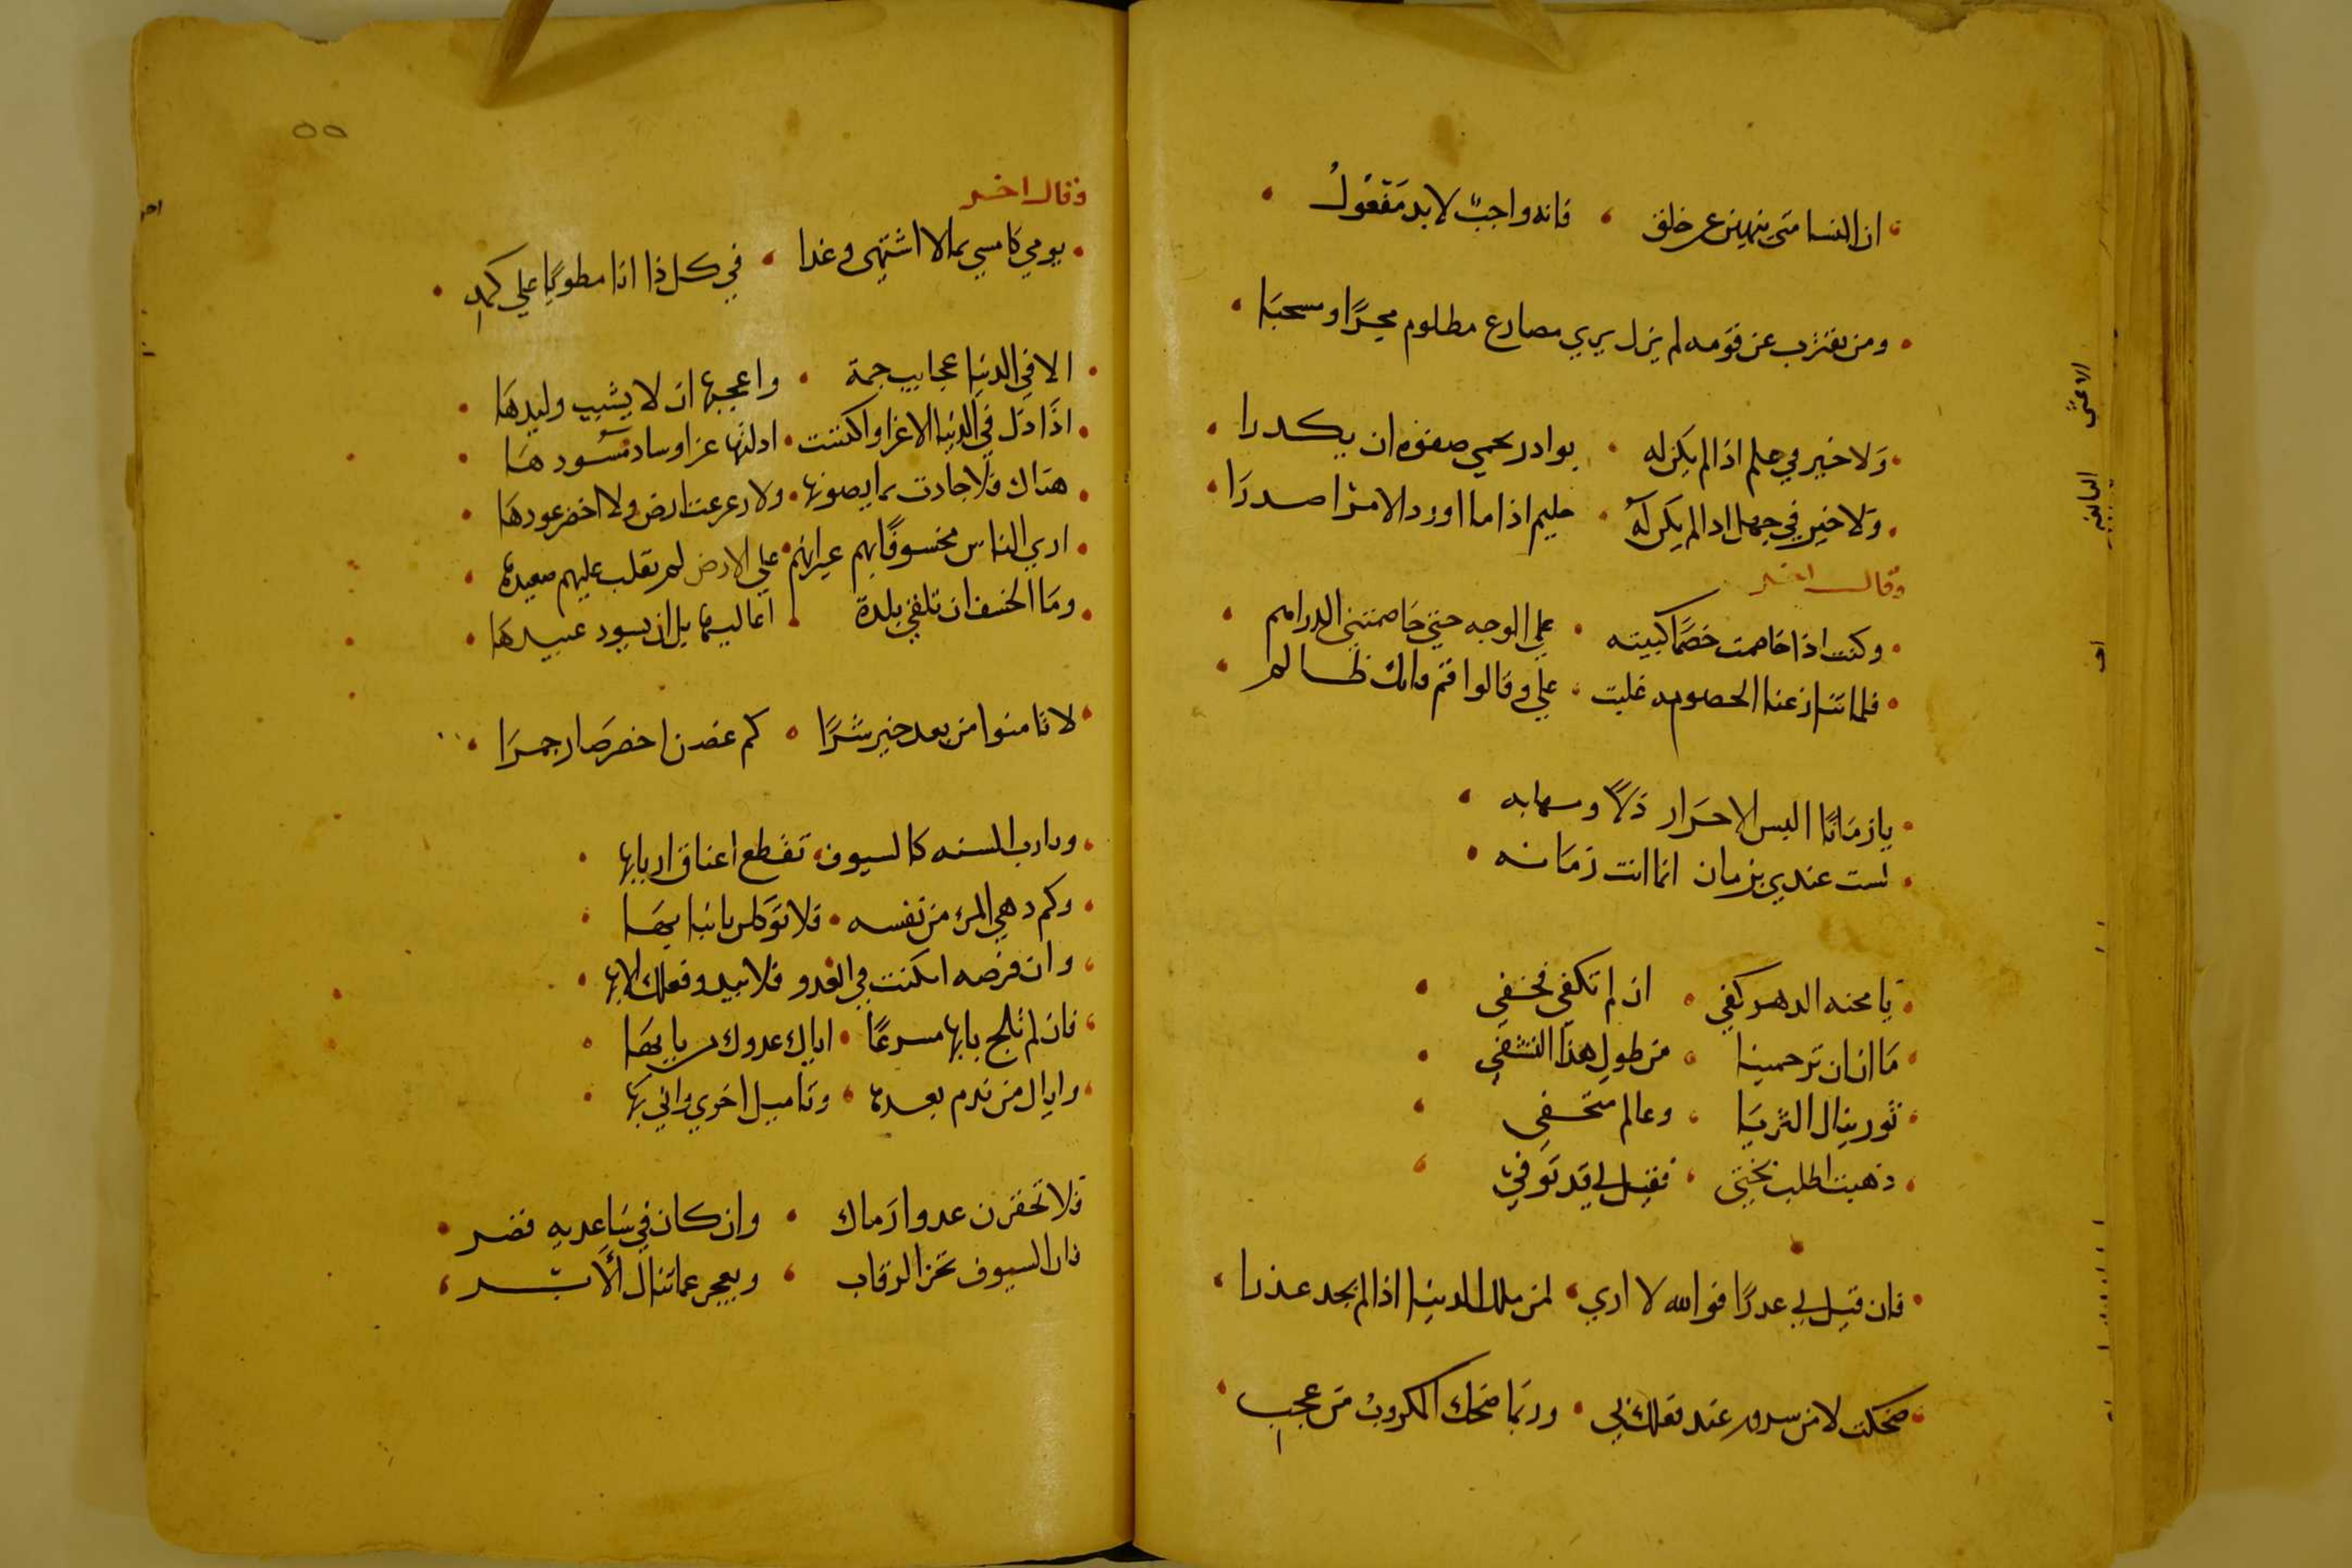 ان النسا متى ينهين عن خلق فانه واجب لا بد مَفعُولُ
ومن يغترب عن قومه لم يزل يري مصارع مظلوم مجرًا ومسحبَا
وَلا خير في حلم اذا لم يكن له بوادر تحمي صفوه ان يكدرا
وَلا خير في جهل ادا لم يكن له حليم اذا ما اورد الامر اصدرَا
وقال اخر
وكنت اذا خاصمت خصمًا كببته علي الوجه حتي خاصمتني الدراهم
فلما تنازعنا الخصومه غلبت علي وقالوا قم فانك ظالم
يا زمَانًا البس الاحرَار ذلًا ومهابه
لست عندي بزمان انما انت زمَانه
يَا محنه الدهر كفي ان لم تكفي فخفي
مَا ان ان ترحمينا من طول هذا التشفي
ثور ينال الثريَا وعالم متخفي
ذهبت اطلب بختي فقيل لي قد توفي
فان قيل لي عدرًا فوالله لا اري لمن ملك الدنيا اذا لم يجد عذرا
ضحكت لا من سرور عند فعلك بي وربما ضحك المكروبُ من عجب
الاعشى
النابغه
٥٥
وقال اخر
يومي كامسي بما لا اشتهى وغدا في كل ذا انا مطويًا علي كمدِ
الا في الدنيا عجايب جمة واعجبها ان لا يشيب وليدهَا
اذا ذل في الدنيا الاعزا واكتست ادلتها عزا وساد مسُودهَا
هناك فلا جادت بما يصونها ولا رعرعت ارض ولا اخضر عودهَا
اري الناس مخسوفًا بهم غير انهم علي الارض لم تقلب عليهم صعيدها
ومَا الخسف ان تلفي بلدة اعاليها بل ان يسود عبيدهَا
لا تامنوا من بعد خير شرًا كم غصن اخضر صَار جمرَا
ورب السنه كالسيوف تقطع اعناق اربابها
وكم دهي المرء من نفسه فلا توكلن بانيابهَا
وان فرصه امكنت في العدو فلا تبد فعلك الا بها
فان لم تلج بابها مسرعًا اتاك عدوك من بابهَا
واياك من ندم بعدها وتاميل اخري واني بها
فلا تحقرن عدوا رَماك وان كان في سَاعديه قصر
فان السيوف تحز الرقاب ويعجز عما تنال الأبر